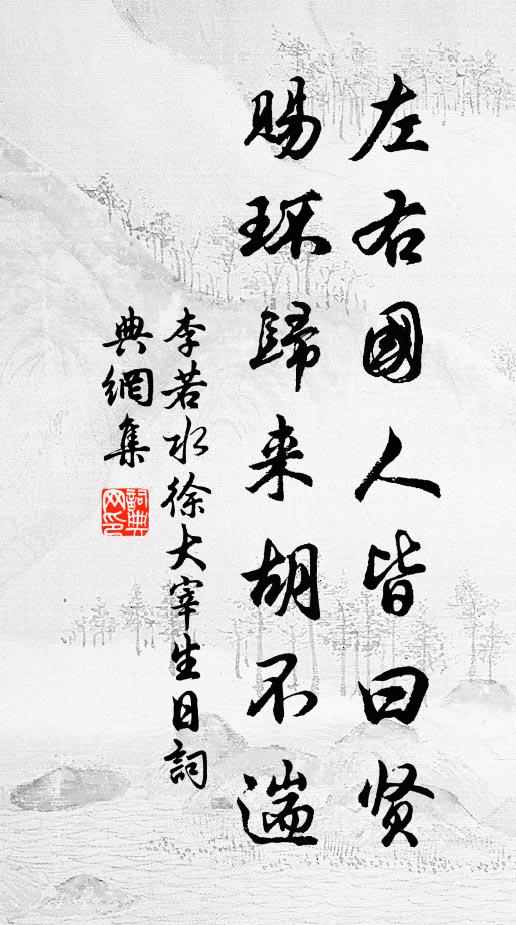 左右國人皆曰贤
赐环歸来胡不遄
李若水徐大宰生日詞
典網集
詞典网印